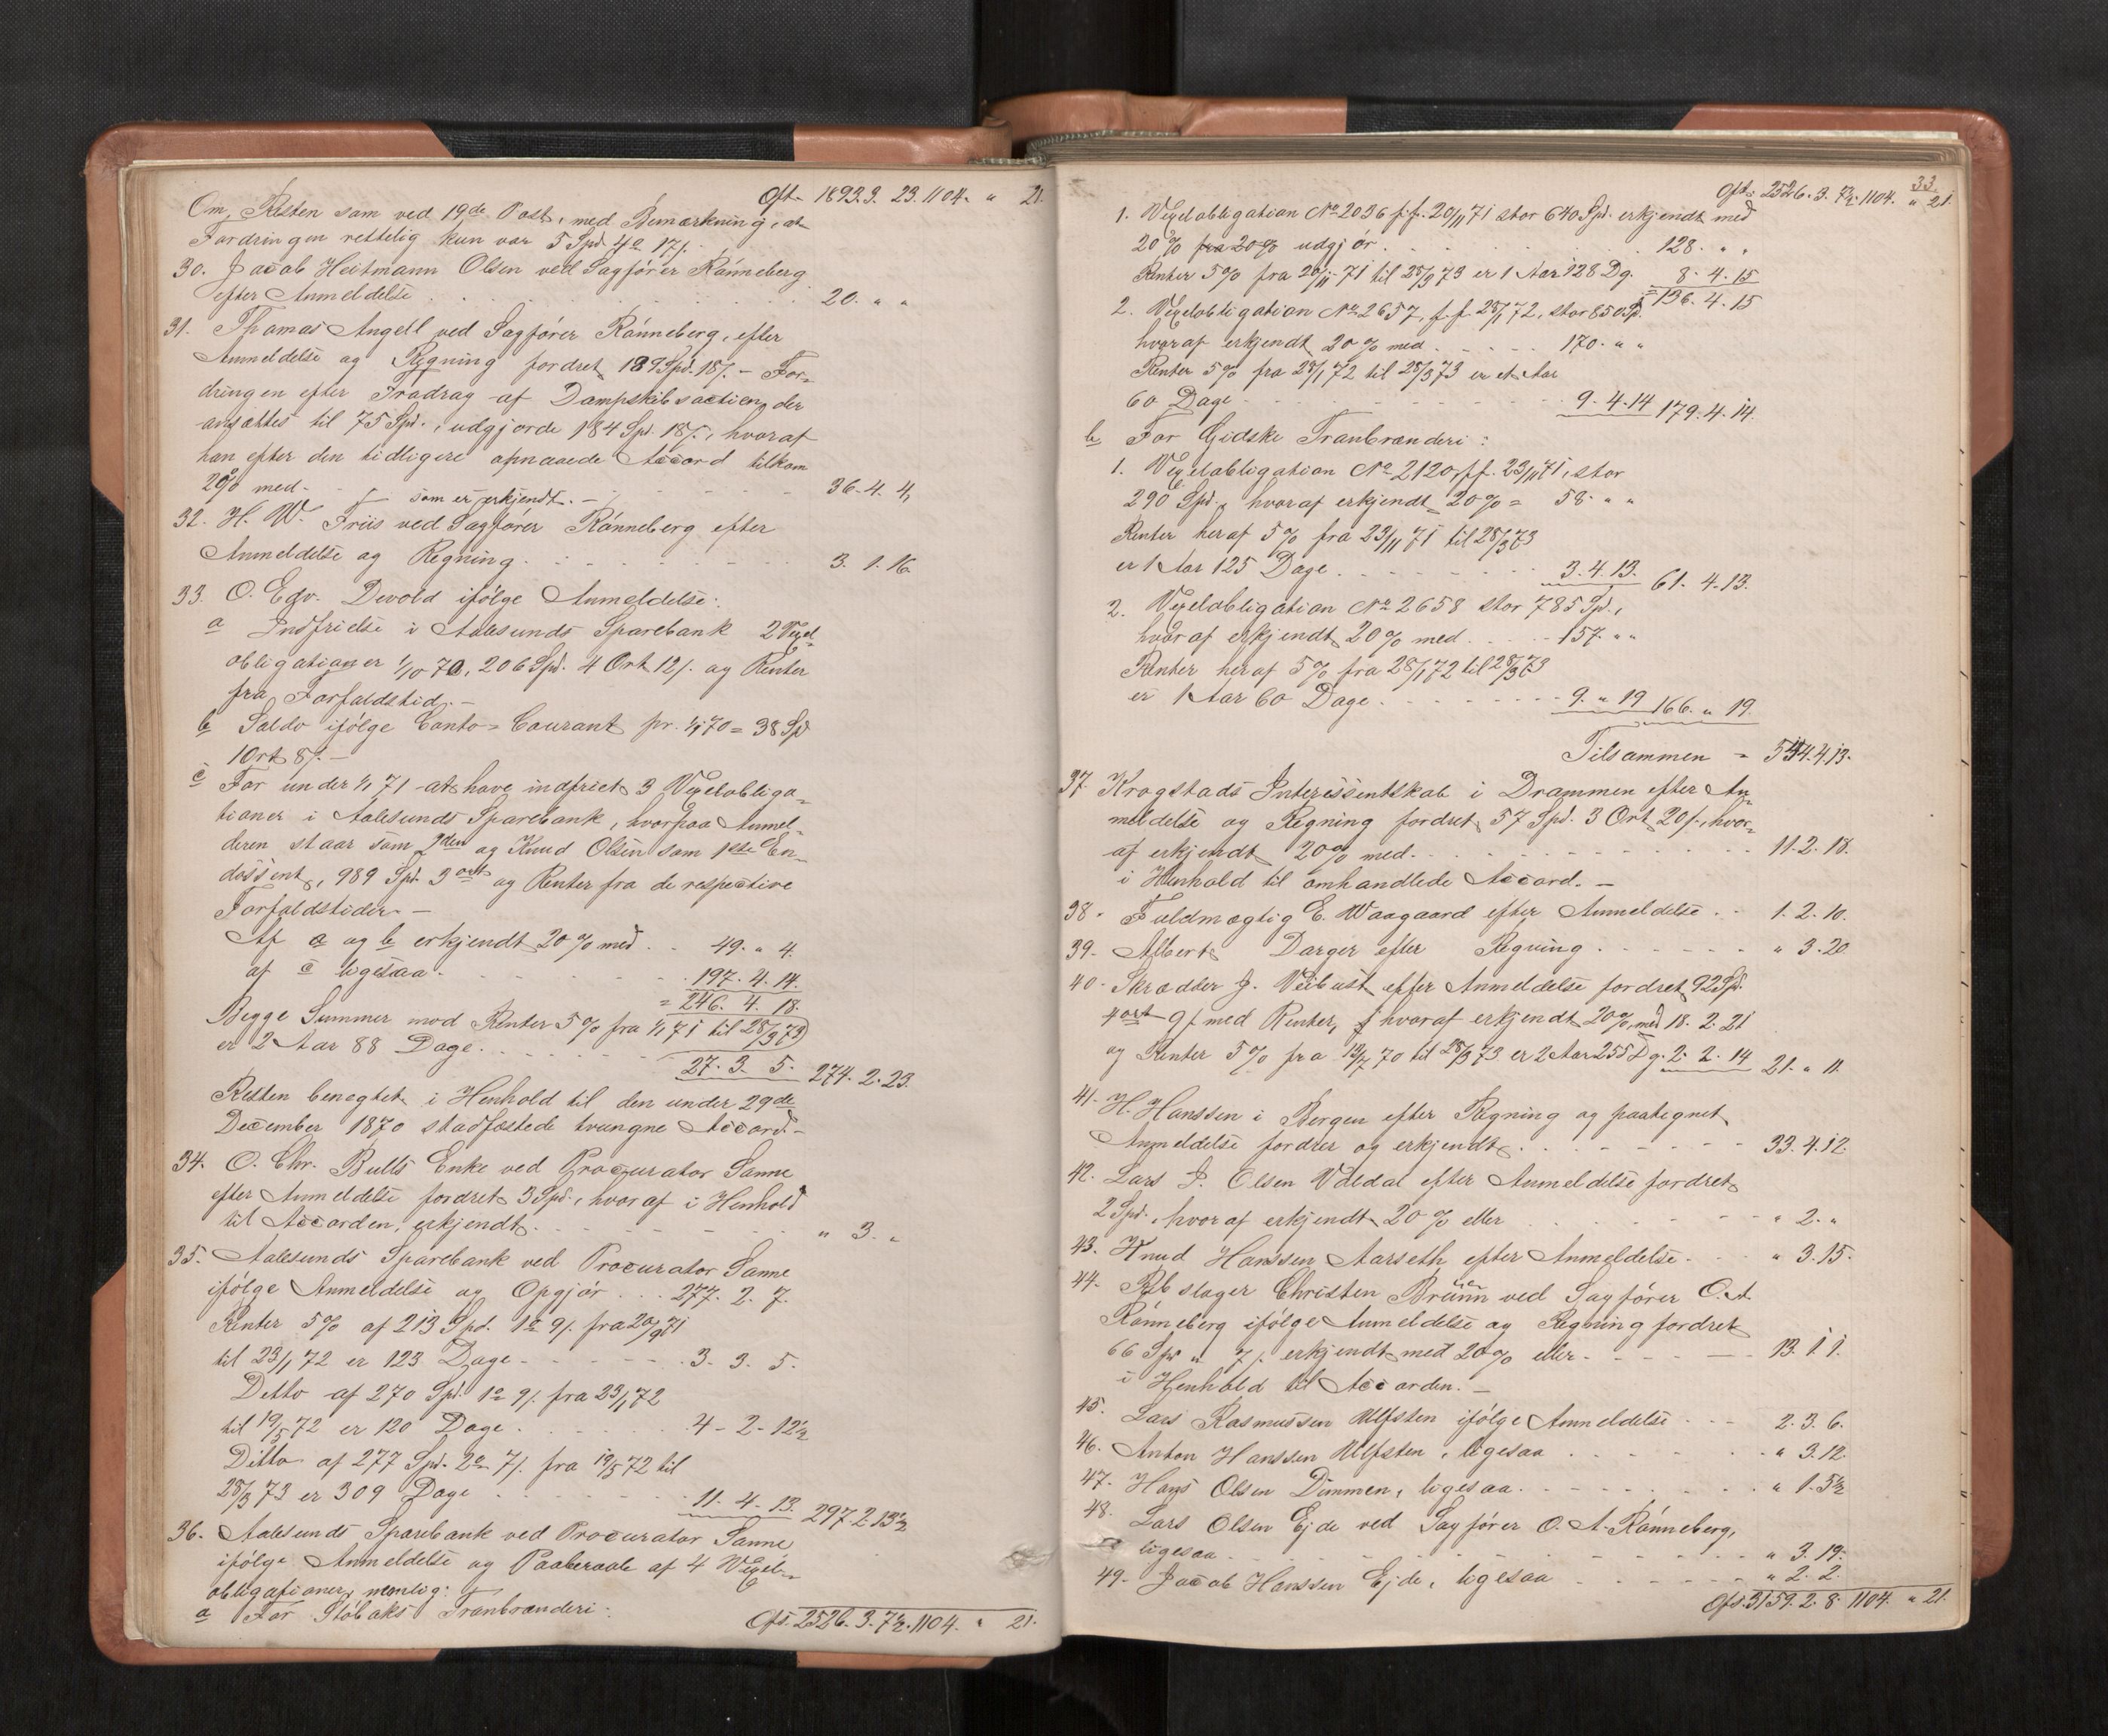 Oft. 1893.3. 23. 1104. " 21.
Om Resten som ved 19de Post, med Bemærkning, at
Fordringen rettelig kun var 5 Spd. 4o 17/.
30. Jacob Heitmann Olsen ved Sagfører Rønneberg
efter Anmeldelse . . . . 20. " "
31. Thomas Angell ved Sagfører Rønneberg, efter
Anmeldelse og Regning fordret 189 Spd. 18/. – For-
dringen efter Fradrag af Dampskibsactien, der
ansættes til 75 Spd., udgjorde 184 Spd. 18/., hvoraf
han efter den tidligere opnaaede Accord tilkom
20% med - som er erkjendt. – 36. 4. 4,
32. H. W. Friis ved Sagfører Rønneberg efter
Anmeldelse og Regning. . . . 3. 1. 16.
33. O. Edv. Devold ifølge Anmeldelse:
a Indfrielse i Aalesunds Sparebank 2 Vexel-
obligationer 1/10 70, 206 Spd. 4 Ort 12/. og Renter
fra Forfaldstid. –
b Saldo ifølge Conto-Courant pr. 1/1 70 = 38 Spd
1 Ort 8/. –
c For under 1/1 71 at have indfriet 3 Vexelobliga-
tioner i Aalesunds Sparebank, hvorpaa Anmel-
deren staar som 2den og Knud Olsen som 1ste En-
dossent, 989 Spd. 3 ort og Renter fra de respective
Forfaldstider. –
Af a og b erkjendt 20% med . . 49. " 4.
af c ligesaa . . . . 197. 4. 14.
= 246. 4. 18.
Begge Summer mod Renter 5% fra 1/1 71 til 28/3 73
er 2 Aar 88 Dage . . . . 27. 3. 5. 274. 2. 23.
Resten benegtet i Henhold til den under 29de
December 1870 stadfæstede tvungne Accord. –
34. O. Chr. Bulls Enke ved Procurator Sanne
efter Anmeldelse fordret 3 Spd., hvoraf i Henhold
til Accorden, erkjendt . . . . " 3. "
35. Aalesunds Sparebank ved Procurator Sanne
ifølge Anmeldelse og Opgjør . . . 277. 2. 7.
Renter 5% af 213 Spd. 1o 9/. fra 20/9 71
til 23/1 72 er 123 Dage . . . . 3. 3. 5.
Ditto af 270 Spd. 1o 9/. fra 23/1 72
til 19/5 72 er 120 Dage . . . . 4 - 2 - 12½
Ditto af 277 Spd. 2o 7/. fra 19/5 72 til
28/3 73 er 309 Dage . . . . 11. 4. 13. 297. 2. 13½
36. Aalesunds Sparebank ved Procurator Sanne
ifølge Anmeldelse og Paaberaab af 4 Vexel-
obligationer, nemlig:
a For Støbaks Tranbrænderi:
Ofs. 2526. 3. 7½. 1104. " 21.
33.
Oft. 2526. 3. 7½. 1104. " 21.
1. Vexelobligation No 2036 f.f. 20/11 71 stor 640 Spd. erkjendt med
20% fra 20% udgjør . . . . 128. " "
Renter 5% fra 20/11 71 til 28/3 73 er 1 Aar 128 Dg. 8. 4. 15
= 136. 4. 15
2. Vexelobligation No 2657, f.f. 28/1 72, stor 850 Spd.
hvoraf erkjendt 20% med . . . . 170. " "
Renter 5% fra 28/1 72 til 28/3 73 er et Aar
60 Dage . . . . 9. 4. 14 179. 4. 14.
b For Gidske Tranbrænderi:
1. Vexelobligation No 2120, f.f. 23/11 71, stor
290 Spd., hvoraf erkjendt 20% = 58. " "
Renter heraf 5% fra 23/11 71 til 28/3 73
er 1 Aar 125 Dage . . . . 3. 4. 13. 61. 4. 13.
2. Vexelobligation No 2658 stor 785 Spd.,
hvoraf erkjendt 20% med . . . . 157. " "
Renter heraf 5% fra 28/1 72 til 28/3 73
er 1 Aar 60 Dage . . . . 9. " 19 166. " 19.
Tilsammen = 544. 4. 13.
37. Krogstads Interessentskab i Drammen efter An-
meldelse og Regning fordret 57 Spd. 3 Ort 20/., hvor-
af erkjendt 20% med . . . . 11. 2. 18.
i Henhold til omhandlede Accord. –
38. Fuldmægtig E. Waagaard efter Anmeldelse . . 1. 2. 10.
39. Albert Darger efter Regning . . . . " 3. 20.
40. Skrædder J. Veibust efter Anmeldelse fordret 92 Spd.
4 ort 9/. med Renter, hvoraf erkjendt 20%, med 18. 2. 21
og Renter 5% fra 13/7 70 til 28/3 73 er 2 Aar 255 Dg. 2. 2. 14 21. " 11.
41. H. Hanssen i Bergen efter Regning og paategnet
Anmeldelse fordrer og erkjendt . . . . 33. 4. 12.
42. Lars J. Olsen Valdal efter Anmeldelse fordret
2 Spd., hvoraf erkjendt 20% eller . . . . " 2. "
43. Knud Hanssen Aarseth efter Anmeldelse . . . " 3. 15.
44. Rebslager Christen Brünn ved Sagfører O. A.
Rønneberg ifølge Anmeldelse og Regning fordret
66 Spd " 7/. erkjendt med 20% eller . . . . 13. 1. 1.
i Henhold til Accorden. –
45. Lars Rasmussen Ulfsten ifølge Anmeldelse . . . 2. 3. 6.
46. Anton Hanssen Ulfsten, ligesaa . . . . " 3. 12.
47. Hans Olsen Dimmen, ligesaa . . . . " 1. 5½
48. Lars Olsen Ejde ved Sagfører O. A. Rønneberg,
ligesaa . . . . " 3. 19.
49. Jacob Hanssen Ejde, ligesaa . . . . " 2. 2.
Ofs. 3159. 2. 8. 1104. " 21.